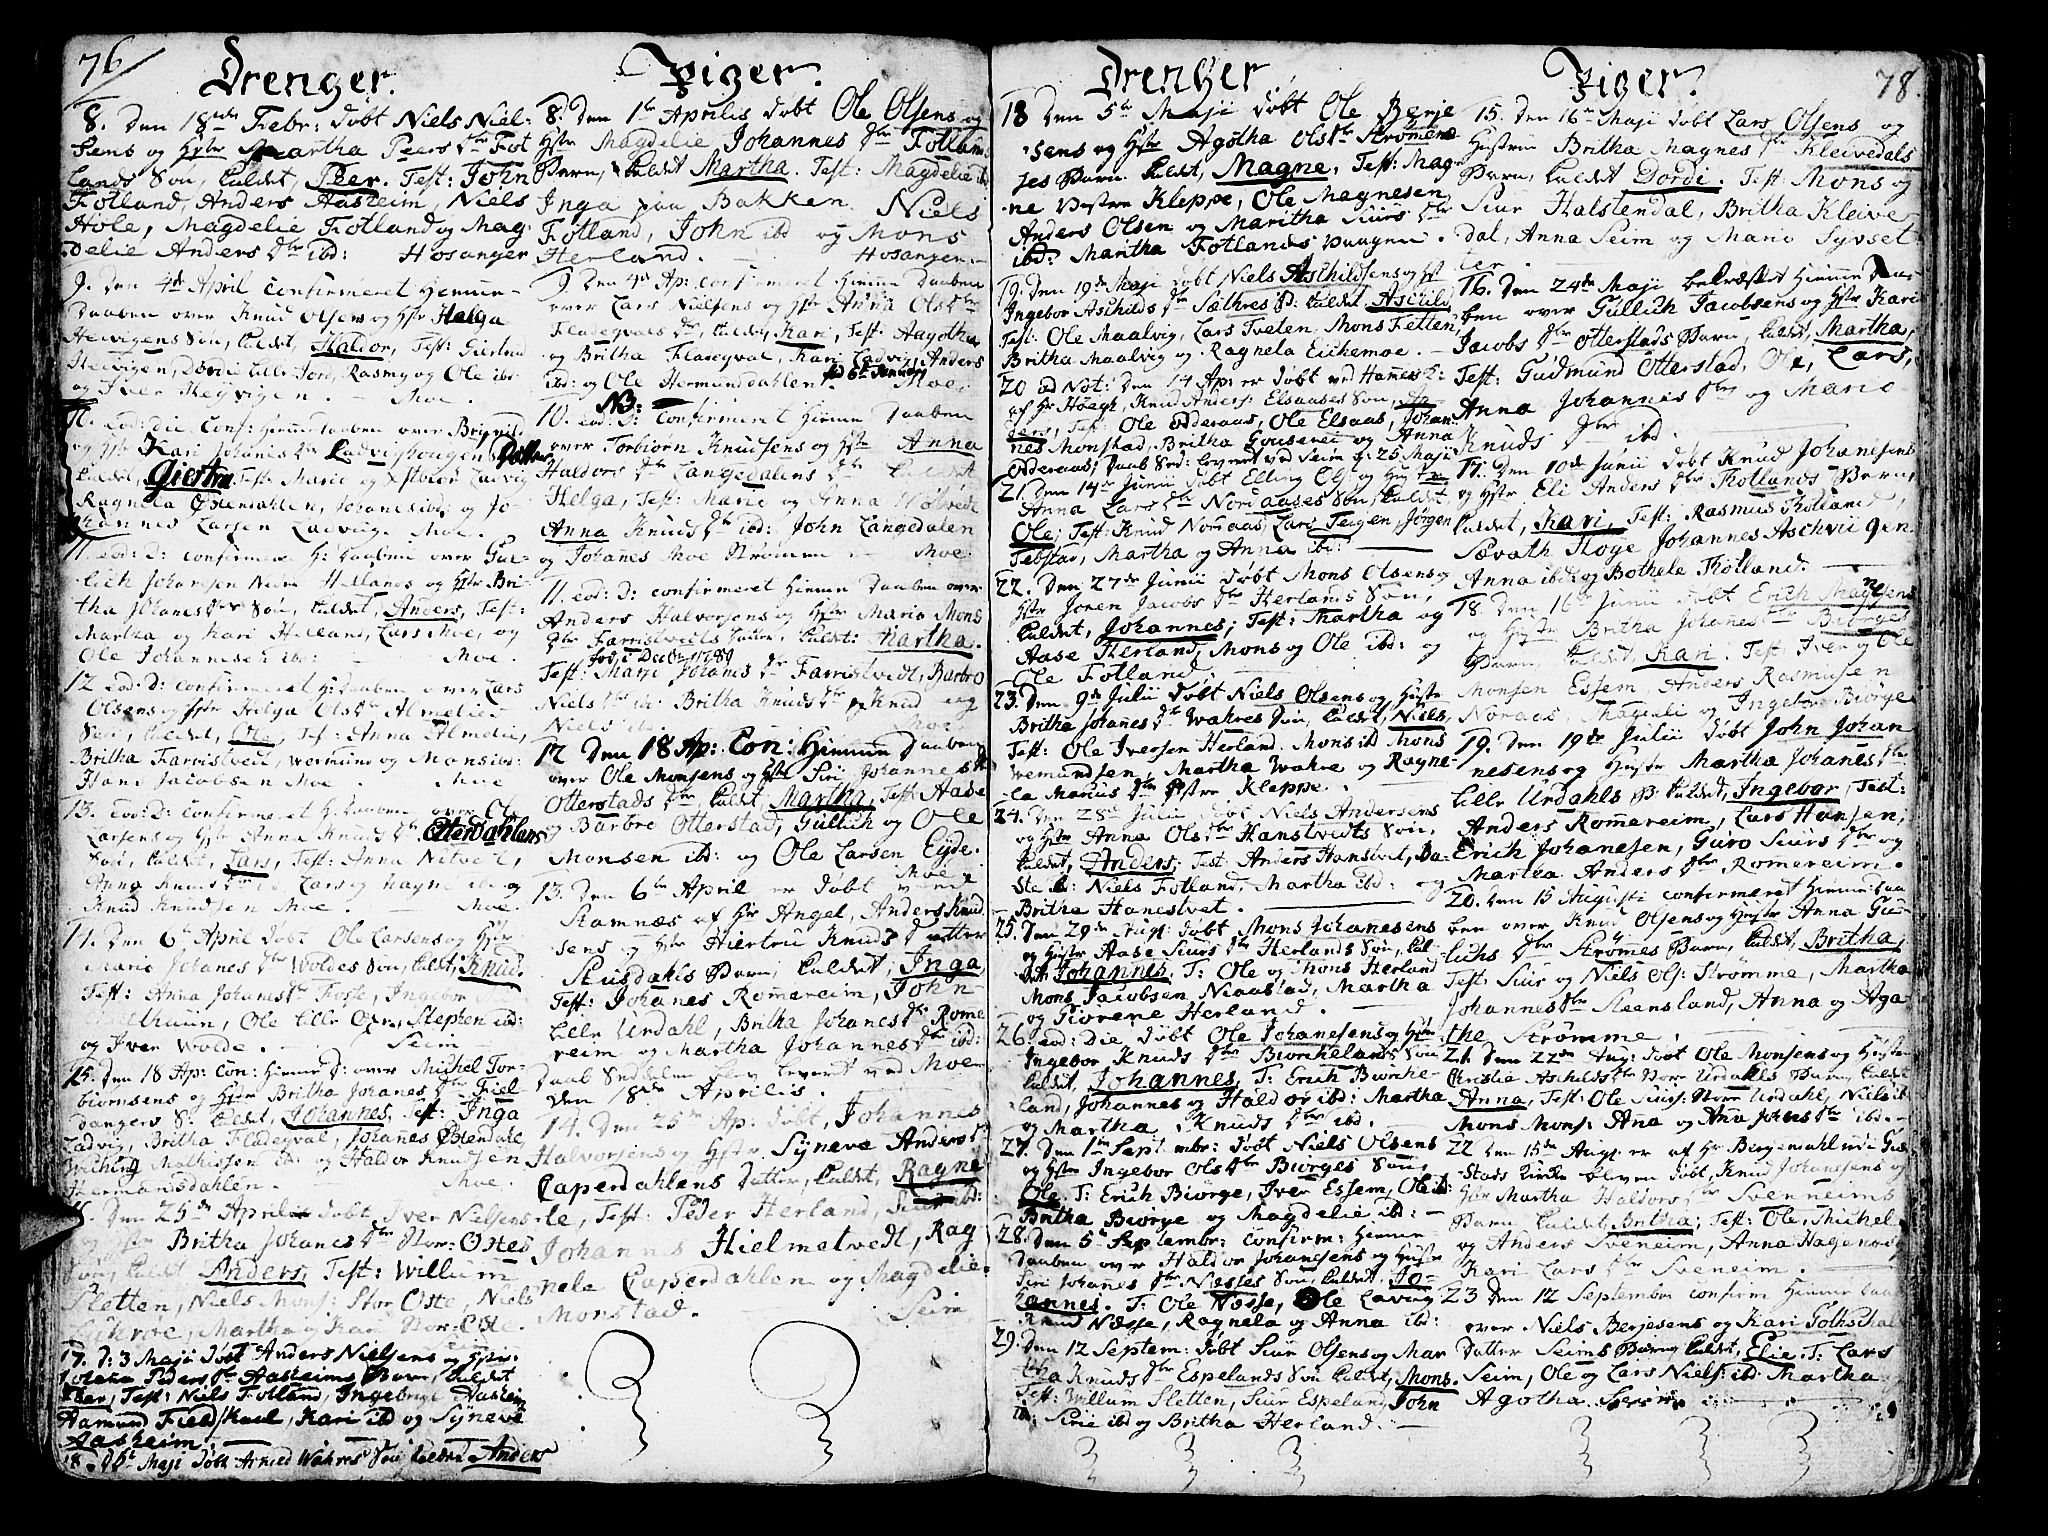 76
Drenger.
8. Den 18de Febr: døbt Niels Niel-
sens og Hstr Martha Peers dtr Fot
lands Søn, kaldet, Peer. Test: John
Fotland, Anders Aasheim, Niels
Hole, Magdelie Fotland og Mag-
delie Anders dtr ibd: Hosanger
9. Den 4de April confirmeret Hiemme-
daaben over Knud Olsens og Hstr Helga
Helvigens Søn, kaldet, Haldor, Test: Giertrud
Helvigen, Dordi Lille , Rasmus og Ole ibd:
og Iver Helvigen. - Moe.
10. eod: die Conf: Hiemmedaaben over
og Hstr Kari Johanes dtr Ladvighougens Datter
kaldet, Giertru Test: Marie og Ladvig
Ragnela Østendahlen, Johanes ibd: og Jo-
hannes Larsen Ladvig. Moe.
11. eod: D: confirmeret H: Daaben over Gul-
lich Johansen Nedre Hellands og Hstr Bri-
tha Johanes dtr Søn, kaldet, Anders, Test:
Martha og Kari Helland, Lars Moe, og
Ole Johannesen ibd: Moe.
12 eod: D: confirmeret H: Daaben over Lars
Olsens og Hstr Helga Ols dtr Almelie-
Søn, kaldet, Ole, Test: Anna Almelie,
Britha Farristvedt, Wermund og Mons ibd:
Hans Jacobsen Moe. Moe
13. eod: D: confirmeret H. Daaben over Ole
Larsens og Hstr Anna Knuds dtr Otterdahlens
Søn, kaldet, Lars, Test: Anna Nitvet,
Anna Knuds dtr ibd, Lars og Magne ibd og
Knud Knudsen Moe. - Moe.
14. Den 6te April døbt Ole Larsens og Hstr
Mario Johanes dtr Woldes Søn, kaldet, Knud.
Test: Anna Johanes dtr Fosse, Ingebor
, Ole Lille , Stephen ibd:
og Iver Wolde. - Seim
15. Den 18 Ap: Con: Hiemme D: over Michel Tor-
biørnsens og Hstr Britha Johanes dtr Fiel
dangers S: kaldet, Johannes, Test: Inga
Ladvig, Britha Fladegval, Johanes Østendale,
Mathissen ibd: og Haldor Knudsen
Hermansdahlen. Moe.
16. Den 25de Aprilis døbt Iver Nielsens
og Hstr Britha Johanes dtr Stor-Ostes
Søn, kaldet Anders, Test: Willum
Sletten, Niels Mons: Stor Oste, Niels
, Martha og Kari Stor-Oste.
17. D: 3 Maji døbt Anders Nielsens og Hstr
Peders dtr Aasheims Barn, kaldet
Peer, Test: Niels Fotland, Ingebrigt Aasheim
Aamund Fieldskaal, Kari ibd og Syneve
Aasheim.
18. Maji døbt Wahres Søn kaldet Anders
Piger.
8. Den 1te Aprilis døbt Ole Olsens og
Hstr Magdelie Johannes dtr Fotlands
Barn, kaldet Martha. Test: Magdelie ibd
Inga paa Bakken. Niels
Fotland, John ibd og Mons
Herland. - Hosanger.
9. Den 4de Ap: confirmeret Hiemme Daaben
over Lars Nielsens og Hstr Anna Ols dtr
Fladegvals dtr, kaldet, Kari, Test: Aagotha,
og Britha Fladegval, Kari Ladvig, Anders
ibd: og Ole Hermundsdahlen. fød 6te Januarij Moe.
NB:
10. eod: D: Confirmeret Hiemme Daaben
over Torbiørn Knudsens og Hstr Anna
Haldors dtr Langedalens dtr kaldet
Helga, Test: Marie og Anna Hølvede
Anna Knuds dtr ibd: John Langedalen
og Johanes Moe Strømme - Moe:
11. eod: D: confirmeret Hiemme Daaben over
Anders Halvorsens og Hstr Mario Mons
dtr Farristvedts Datter, kaldet: Martha.
fød i Decbr 1789
Test: Mari Johanes dtr Farristvedt, Barbro
Niels dtr ib: Britha Knuds dtr Knud og
Niels Moe:
12 Den 18 Ap: Con: Hiemme Daaben
over Ole Monsens og Hstr Siri Johannes dtr
Otterstads dtr, kaldet, Martha, Test: Aase
og Barbro Otterstad, Gullich og Ole
Monsen ibd: og Ole Larsen Eyde.
Moe
13. Den 6te April er døbt ved
Hamnæs af Hr Angel, Anders Knud
sens og Hstr Hiertru Knuds datter
Slusdahls Barn, kaldet, Inga
Test: Johanes Romereim, John
Lille Urdahl, Britha Johanes dtr Rome
reim og Martha Johannes dtr ibd:
Daab Seddelen blev leverit ved Moe
den 18de Aprilis.
14. Den 25de Ap: døbt, Johannes
Halvorsens og Hstr Synneve Anders dtr
Caperdahlens Datter, kaldet, Ragne
le, Test: Peder Herland, Siur ibd:
Johannes Hielmetvedt, Rag
nele Caperdahlen og Magdelie
Monstad. Seim
78.
Drenger
18 Den 5te Maji døbt Ole Berje
sens og Hstr Agotha Ols dtr Strømens
Barn kaldet, Magne, Test: Mag-
ne Vestre Kleppe, Ole Magnesen
Anders Olsen og Maritha Siurs dtr
ibd: Maritha Fotlands Vaagnæ.
19. Den 19de Maji døbt Niels Aschildsens og Hst
Ingebor Aschilds dtr Sæthres S: kaldet, Aschild,
Test: Ole Maalvig, Lars Tveten, Mons Tetten,
Britha Maalvig og Ragnela Eichemoe. -
20 ad Not: Den 14 Ap: er døbt ved Hamers K:
af Hr Høegh, Knud Anders: Elsaases Søn, An
ders, Test: Ole Odderaas, Ole Elsaas, Johan-
nes Monstad, Britha og Anna
Odderaas; Daab Sed: leveret ved Seim d: 25 Maji
21. Den 14de Junii døbt Elling Ols: og Hustrue
Anna Lars dtr Nordaases Søn, kaldet
Ole; Test: Knud Noraas, Lars Teigen, Jørgen
Tebstad, Martha og Anna ibd:
22. Den 27de Junii døbt Mons Olsens og
Hstr Joren Jacobs dtr Herlands Søn,
kaldet, Johannes; Test: Martha og
Aase Herland, Mons og Ole ibd: og
Ole Fotland.
23. Den 9de Julii døbt Niels Olsens og Hustr
Britha Johanes dtr Wahres Søn, kaldet, Niels,
Test: Ole Iversen Herland, Mons ibd Mons
Wemundsen, Martha Wahre og Ragne-
la Marius dtr Østre Kleppe.
24. Den 28de Julii døbt Niels Andersens
og Hstr Anna Ols dtr Hanstvedts Søn,
kaldet, Anders; Test: Anders Hanstvet, Da-
Ste ib: Niels Fotland, Martha ibd: og
Britha Hanestvet.
25. Den 29de Aug: døbt Mons Johanesens
og Hustr Aase Siurs dtr Herlands Søn, kal-
det Johannes, T: Ole og Mons Herland
Mons Jacobsen, Niaastad, Martha
og Giorene Herland.
26. eod: die døbt Ole Johanesens og Hstr
Ingebor Knuds dtr Biørchelands Søn
kaldet, Johannes, T: Erich Biørche-
land, Johannes og Haldor ibd: Martha
og Martha Knuds dtr ibd.
27. Den 1te September: døbt Niels Olsens
og Hstr Ingebor Ols dtr Biørges Søn,
Ole, T: Erich Biørge, Iver Essem, Ole ibd:
Britha Biørge og Magdelie ibd: -
28. Den 5te Septembr: confirm: Hiemme
daaben over Haldor Johanesens og Hustr
Siri Johanes dtr Næsses Søn, kaldet, Jo-
hannes. T: Ole Næsse, Ole Laving
Knud Næsse, Ragnela og Anna ibd:
29. Den 12 Septem: døbt Siur Olsens og Mar
tha Knuds dtr Espelands Søn kaldet, Mons.
Test: Willum Sletten, Siur Espeland, John
ibd: Sirie ibd og Britha Herland.
Piger.
15. Den 16de Maji døbt Lars Olsens og
Hustrue Britha Magnes dtr Kleivedals
Barn, kaldet Dordi. Test: Mons og
Siur Halstendal, Britha Kleive-
dal, Anna Seim og Mario Syvset
ter.
16. Den 24de Maji bekræftet Hiemme Daa-
ben over Gullich Jacobsens og Hstr Kari
Jacobs dtr Otterstads Barn, kaldet, Martha,
Test: Gudmund Otterstad, Ole, Lars,
Anna Johannes dtr og Mario
Knuds dtr ibd.
17. Den 10de Junii døbt Knud Johanesens
og Hstr Eli Anders dtr Fotlands Barn,
kaldet, Kari, Test: Rasmus Fotland
Sævath Høye Johannes Aschviigen
Anna ibd: og Bothele Fotland.
18. Den 16de Junii døbt Erich Magnesens
og Hustr Britha Johanes dtr Biørges
Barn, kaldet, Kari. Test: Iver og Ole
Monsen Essem Anders Rasmusen
Noraas, Magdeli og Ingebor Biørge
19. Den 19de Julii døbt John Johan
nesens og Hustr Martha Johanes dtr
Lille Urdahls B: kaldet, Ingebor, Test:
Anders Romereim, Lars Hansen,
Erich Johanesen, Guro Siurs dtr og
Martha Anders dtr Romereim.
20. Den 15 Augusti confirmeret Hiemmedaa
ben over Knud Olsens og Hustr Anna Gul-
lichs dtr Strømes Barn, kaldet, Britha,
Test: Siur og Niels Ols: Strømme, Martha
Johannes dtr Steensland, Anna og Aga-
the Strømme.
21. Den 22de Aug: døbt Ole Monsens og Hustru
Christie Aschilds dtr Norr Urdahls Barn, kaldet
Anna, Test: Ole Siurs: Norr Urdahl, Niels ib
Mons Mons: Ana og Ana Johnes dtr ibd. -
22 Den 15de Aug: er af Hr Bergendahl udi Gie
stads Kirke bleven døbt, Knud Johanesens og
Hstr Martha Haldors dtr Sveneims
Barn kaldet Britha; Test: Ole, Michel
og Anders Sveneim, Anna Hagenæs,
Kari Lars dtr Sveneim.
23 Den 12 September confirm Hiemme daab
over Niels Berjesens og Kari Folkschals
Datter Seims Barn kaldet, Elie. T: Lars
Seim, Ole og Lars Niels: ibd. Martha
Agotha Seim